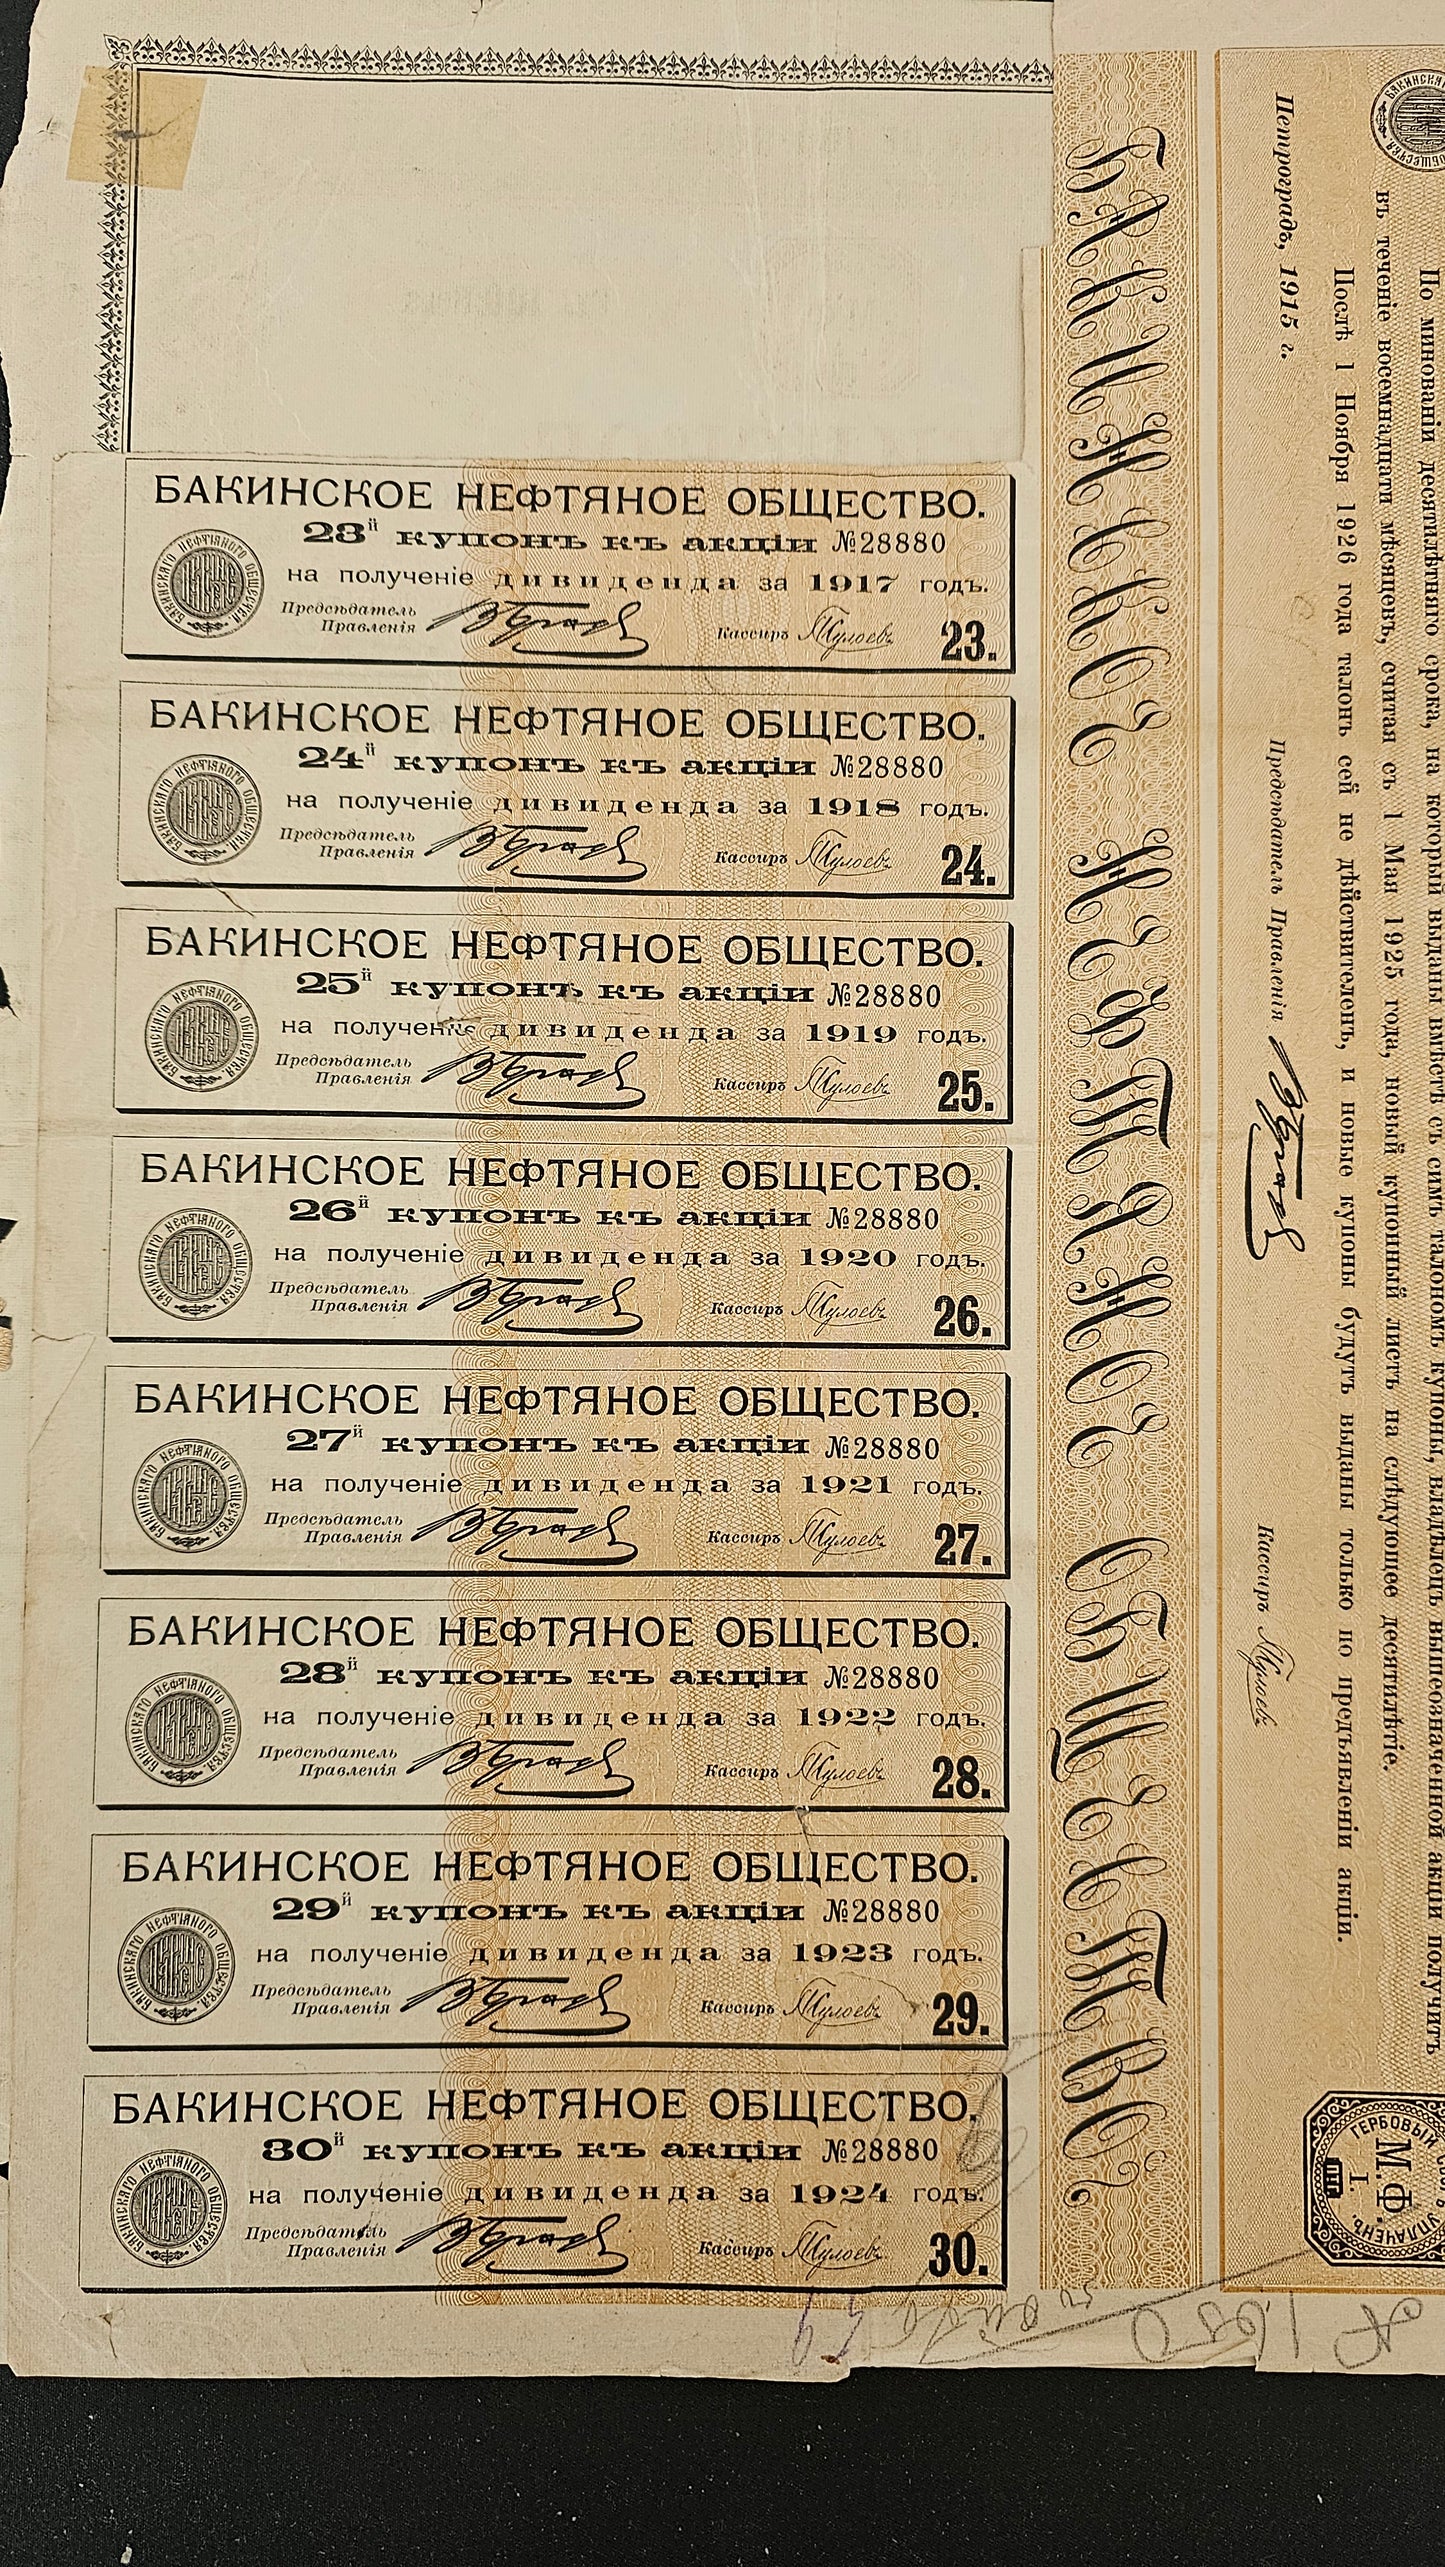 БАКИНСКОЕ НЕФТЯНОЕ ОБЩЕСТВО.
23й купонъ къ акціи №28880
на полученіе дивиденда за 1917 годъ.
Предсѣдатель
Правленія
Кассиръ
23.
БАКИНСКАГО НЕФТЯНОГО ОБЩЕСТВА.
БАКИНСКОЕ НЕФТЯНОЕ ОБЩЕСТВО.
24й купонъ къ акціи №28880
на полученіе дивиденда за 1918 годъ.
Предсѣдатель
Правленія
Кассиръ
24.
БАКИНСКАГО НЕФТЯНОГО ОБЩЕСТВА.
БАКИНСКОЕ НЕФТЯНОЕ ОБЩЕСТВО.
25й купонъ къ акціи №28880
на полученіе дивиденда за 1919 годъ.
Предсѣдатель
Правленія
Кассиръ
25.
БАКИНСКАГО НЕФТЯНОГО ОБЩЕСТВА.
БАКИНСКОЕ НЕФТЯНОЕ ОБЩЕСТВО.
26й купонъ къ акціи №28880
на полученіе дивиденда за 1920 годъ.
Предсѣдатель
Правленія
Кассиръ
26.
БАКИНСКАГО НЕФТЯНОГО ОБЩЕСТВА.
БАКИНСКОЕ НЕФТЯНОЕ ОБЩЕСТВО.
27й купонъ къ акціи №28880
на полученіе дивиденда за 1921 годъ.
Предсѣдатель
Правленія
Кассиръ
27.
БАКИНСКАГО НЕФТЯНОГО ОБЩЕСТВА.
БАКИНСКОЕ НЕФТЯНОЕ ОБЩЕСТВО.
28й купонъ къ акціи №28880
на полученіе дивиденда за 1922 годъ.
Предсѣдатель
Правленія
Кассиръ
28.
БАКИНСКАГО НЕФТЯНОГО ОБЩЕСТВА.
БАКИНСКОЕ НЕФТЯНОЕ ОБЩЕСТВО.
29й купонъ къ акціи №28880
на полученіе дивиденда за 1923 годъ.
Предсѣдатель
Правленія
Кассиръ
29.
БАКИНСКАГО НЕФТЯНОГО ОБЩЕСТВА.
БАКИНСКОЕ НЕФТЯНОЕ ОБЩЕСТВО.
30й купонъ къ акціи №28880
на полученіе дивиденда за 1924 годъ.
Предсѣдатель
Правленія
Кассиръ
30.
БАКИНСКАГО НЕФТЯНОГО ОБЩЕСТВА.
По минованіи десятилѣтняго срока, на который выданы вмѣстѣ съ симъ талономъ купоны, владѣлецъ вышеозначенной акціи получитъ
въ теченіе восемнадцати мѣсяцевъ, считая съ 1 Мая 1925 года, новый купонный листъ на слѣдующее десятилѣтіе.
Послѣ 1 Ноября 1926 года талонъ сей не дѣйствителенъ, и новые купоны будутъ выданы только по предъявленіи акціи.
Петроградъ, 1915 г.
Предсѣдатель Правленія
Кассиръ
БАКИНСКОЕ НЕФТЯНОЕ ОБЩЕСТВО
ГЕРБОВЫЙ СБОРЪ УПЛАЧЕНЪ.
М.Ф.
I.